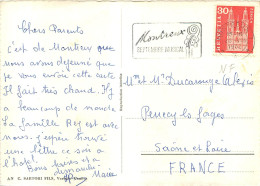 Chers Parents
C'est de Montreux que
nous avons déjeuné que
je vous envoie cette carte
Il fait très chaud. Il y
a beaucoup de monde
La famille Rey est avec
nous. J'espère trouvé
une lettre ce soir à
l'hotel.
Bons baisers et a
dimanche
Marie
Montreux
SEPTEMBRE MUSICAL
HELVETIA
30
Mr et Mme Ducarouge Alexis
Perrecy les Forges
Saône et Loire
FRANCE